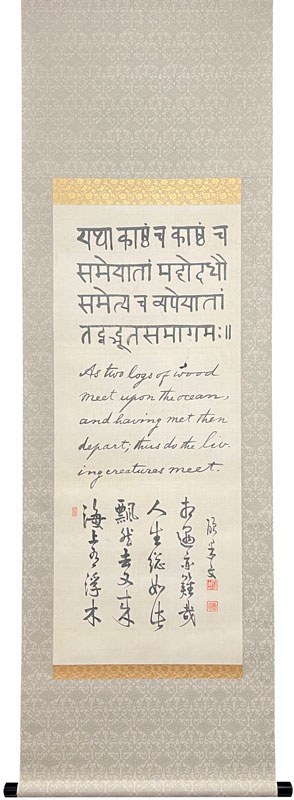 यथा काष्ठं च काष्ठं च
समेयातां महोदधौ
समेत्य च व्यपेयातां
तद्वद्भूतसमागमः॥
As two logs of wood
meet upon the ocean,
and having met then
depart, thus do the liv-
ing creatures meet.
海上有浮木
飄然去又来
人生総如此
相遇亦難哉